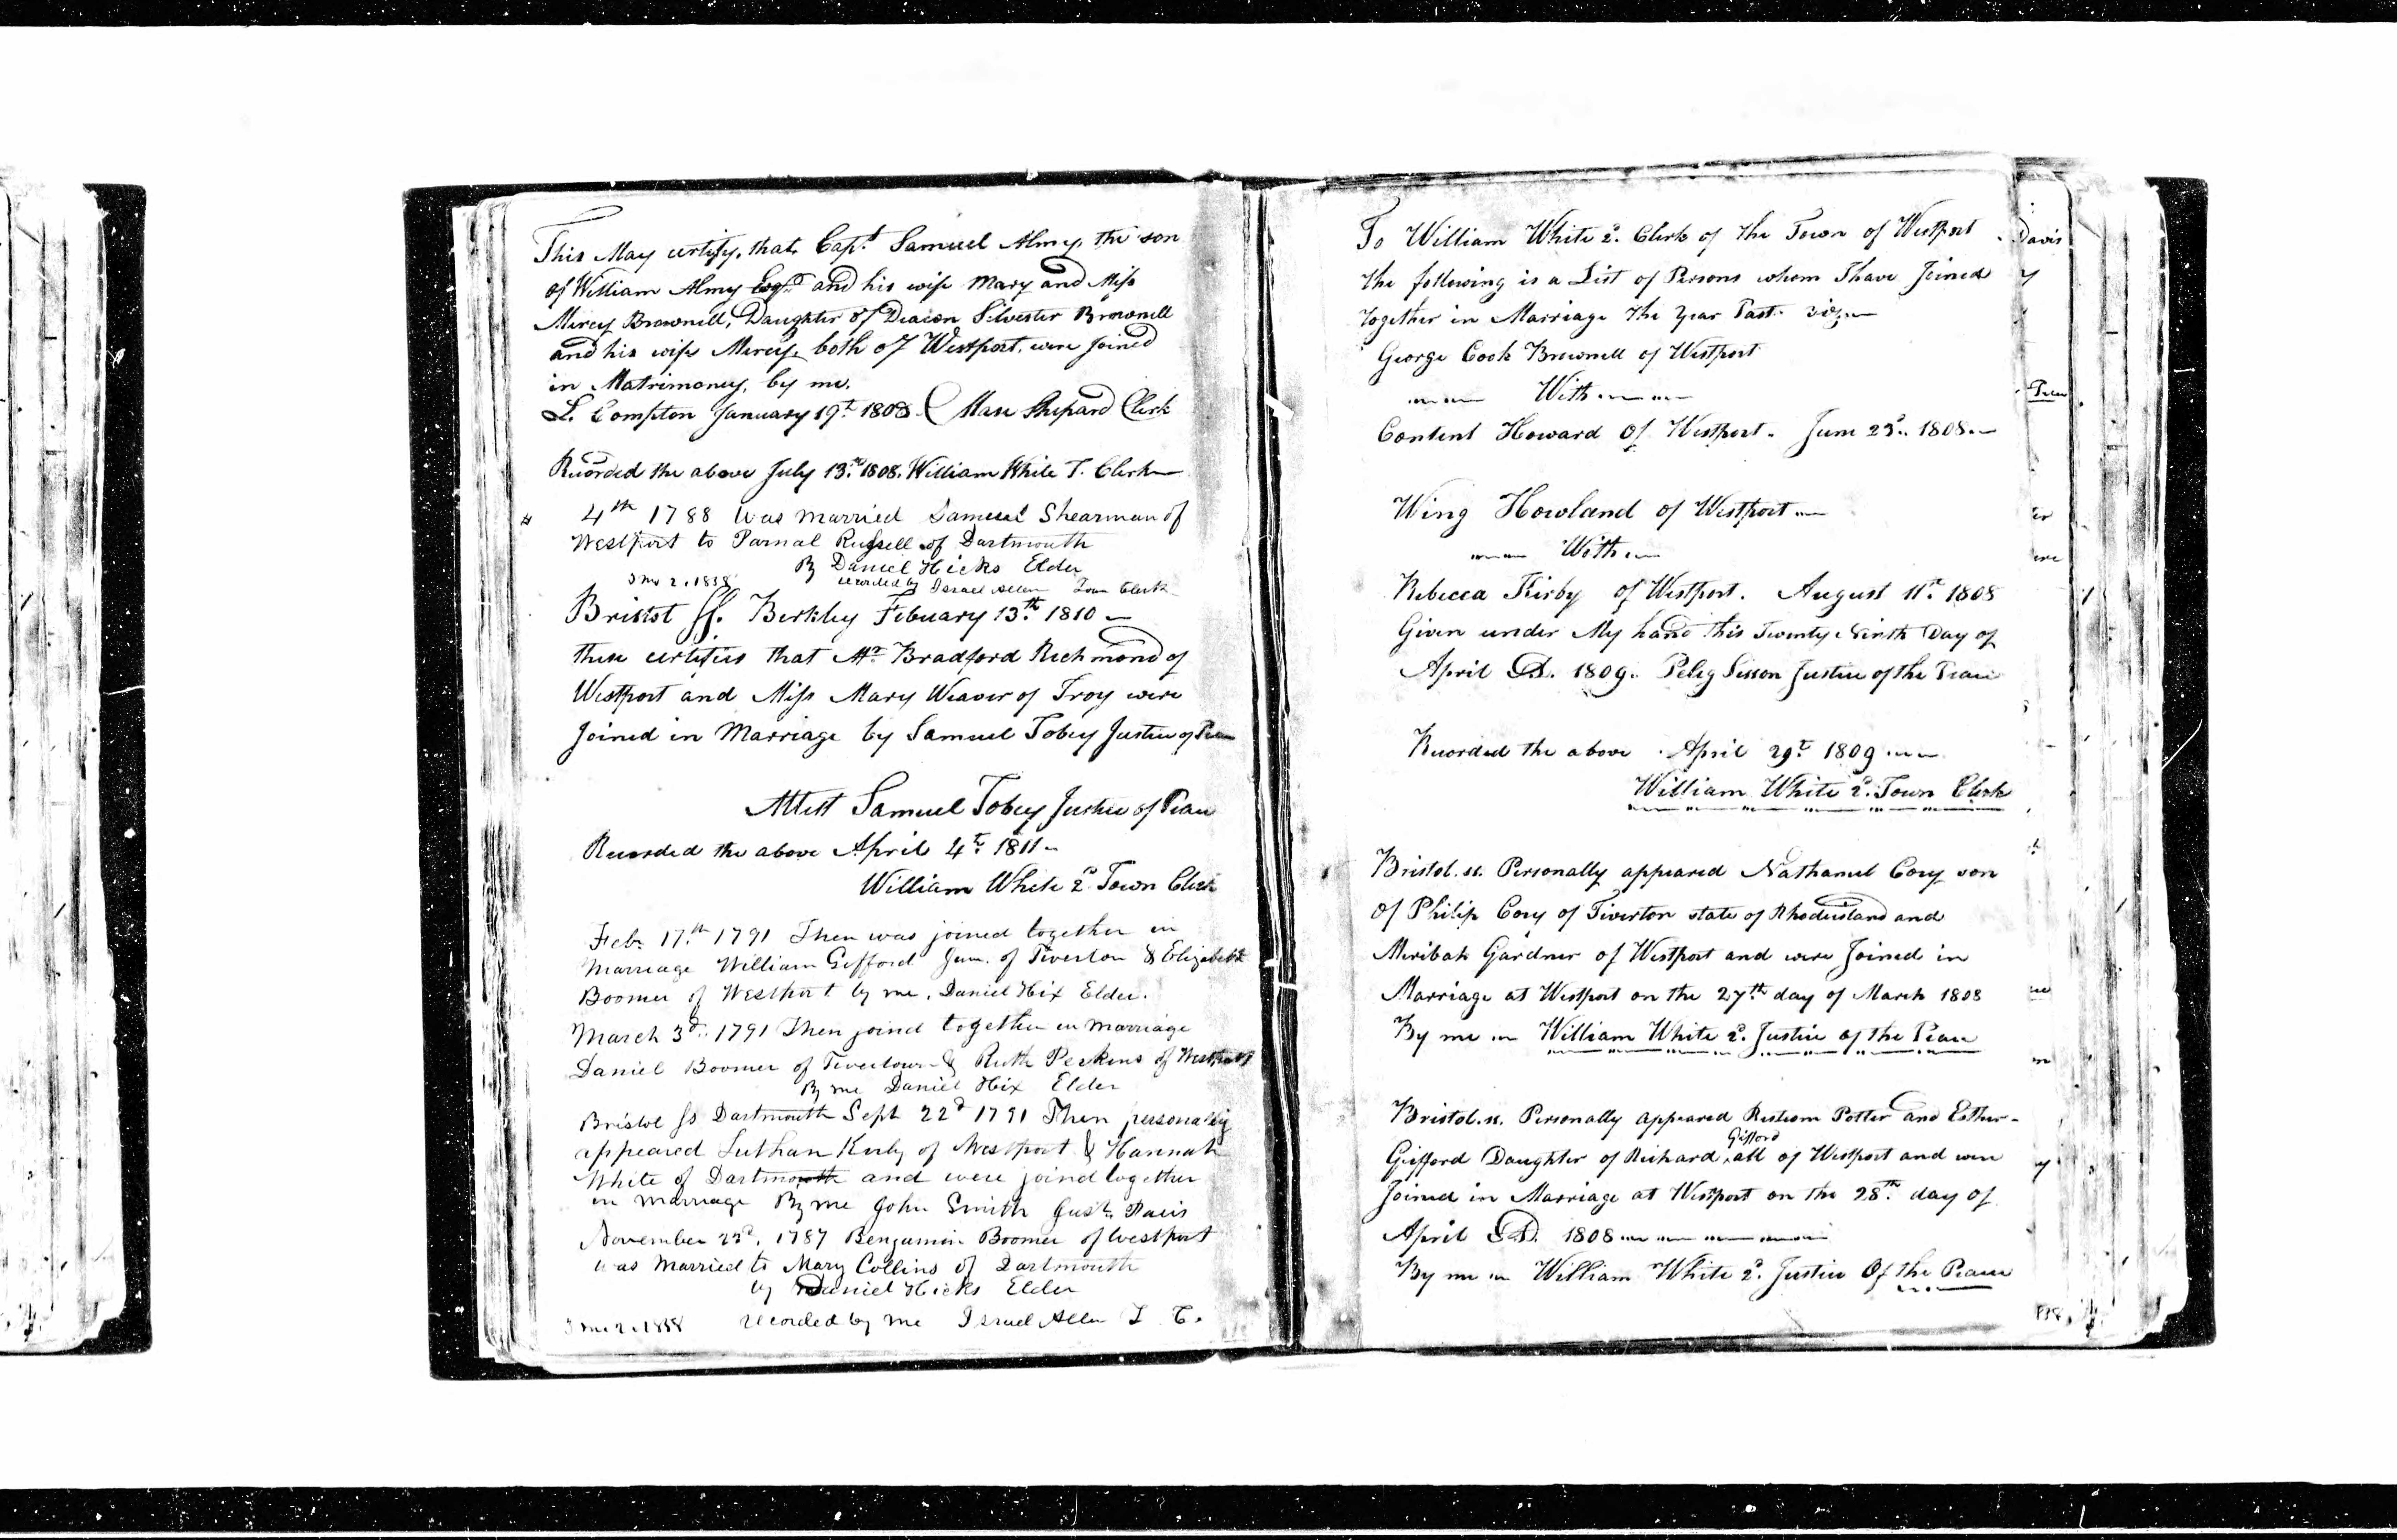 This May certify, that Capt. Samuel Almy, the son
of William Almy Esqr. and his wife Mary and Miss
Mercy Brownell, Daughter of Deacon Silvester Brownell
and his wife Mercy, both of Westport, were joined
in Matrimony, by me,
L. Compton January 19th 1808. Mase Shepard Clerk
Recorded the above July 13th 1808. William White T. Clerk
4th 1788 Was married Samuel Shearman of
Westport to Parnal Russell of Dartmouth
By Daniel Hicks Elder
2, 1838 recorded by Israel Allen Town Clerk
Bristol ss. Berkley Febuary 13th 1810
these certifies that Mr. Bradford Richmond of
Westport and Miss Mary Weaver of Troy were
Joined in Marriage by Samuel Tobey Justice of Peace
Attest Samuel Tobey Justice of Peace
Recorded the above April 4th 1811
William White 2d Town Clerk
Feb. 17th 1791 Then was joined together in
Marriage William Gifford Jun. of Tiverton & Elizabeth
Boomer of Westport by me, Daniel Hix Elder.
March 3d. 1791 Then joind together in marriage
Daniel Boomer of Tivertown & Ruth Perkins of Westport
By me Daniel Hix Elder
Bristol ss Dartmouth Sept 22d 1791 Then personally
appeared Luthan Kirby of Westport & Hannah
White of Dartmouth and were joind together
in marriage By me John Smith Just. Pacis
November 22d, 1787 Benjamin Boomer of Westport
was Married to Mary Collins of Dartmouth
by Daniel Hicks Elder
2, 1838 recorded by me Israel Allen T. C.
To William White 2d. Clerk of the Town of Westport
the following is a List of Persons whom I have Joined
together in Marriage the year Past. viz.
George Cook Brownell of Westport
With
Content Howard of Westport. June 23d. 1808.
Wing Howland of Westport
With
Rebecca Kirby of Westport. August 11th 1808
Given under My hand this Twenty Ninth Day of
April AD. 1809. Peleg Sisson Justice of the Peace
Recorded the above April 29th 1809
William White 2d. Town Clerk
Bristol. ss. Personally appeared Nathaniel Cory son
of Philip Cory of Tiverton state of Rhodeisland and
Meribah Gardner of Westport and were Joined in
Marriage at Westport on the 27th day of March 1808
By me William White 2d. Justice of the Peace
Bristol. ss. Personally appeared Restcom Potter and Esther
Gifford
Gifford Daughter of Richard all of Westport and were
Joined in Marriage at Westport on the 28th day of
April AD. 1808
By me William White 2d. Justice Of the Peace
Davis